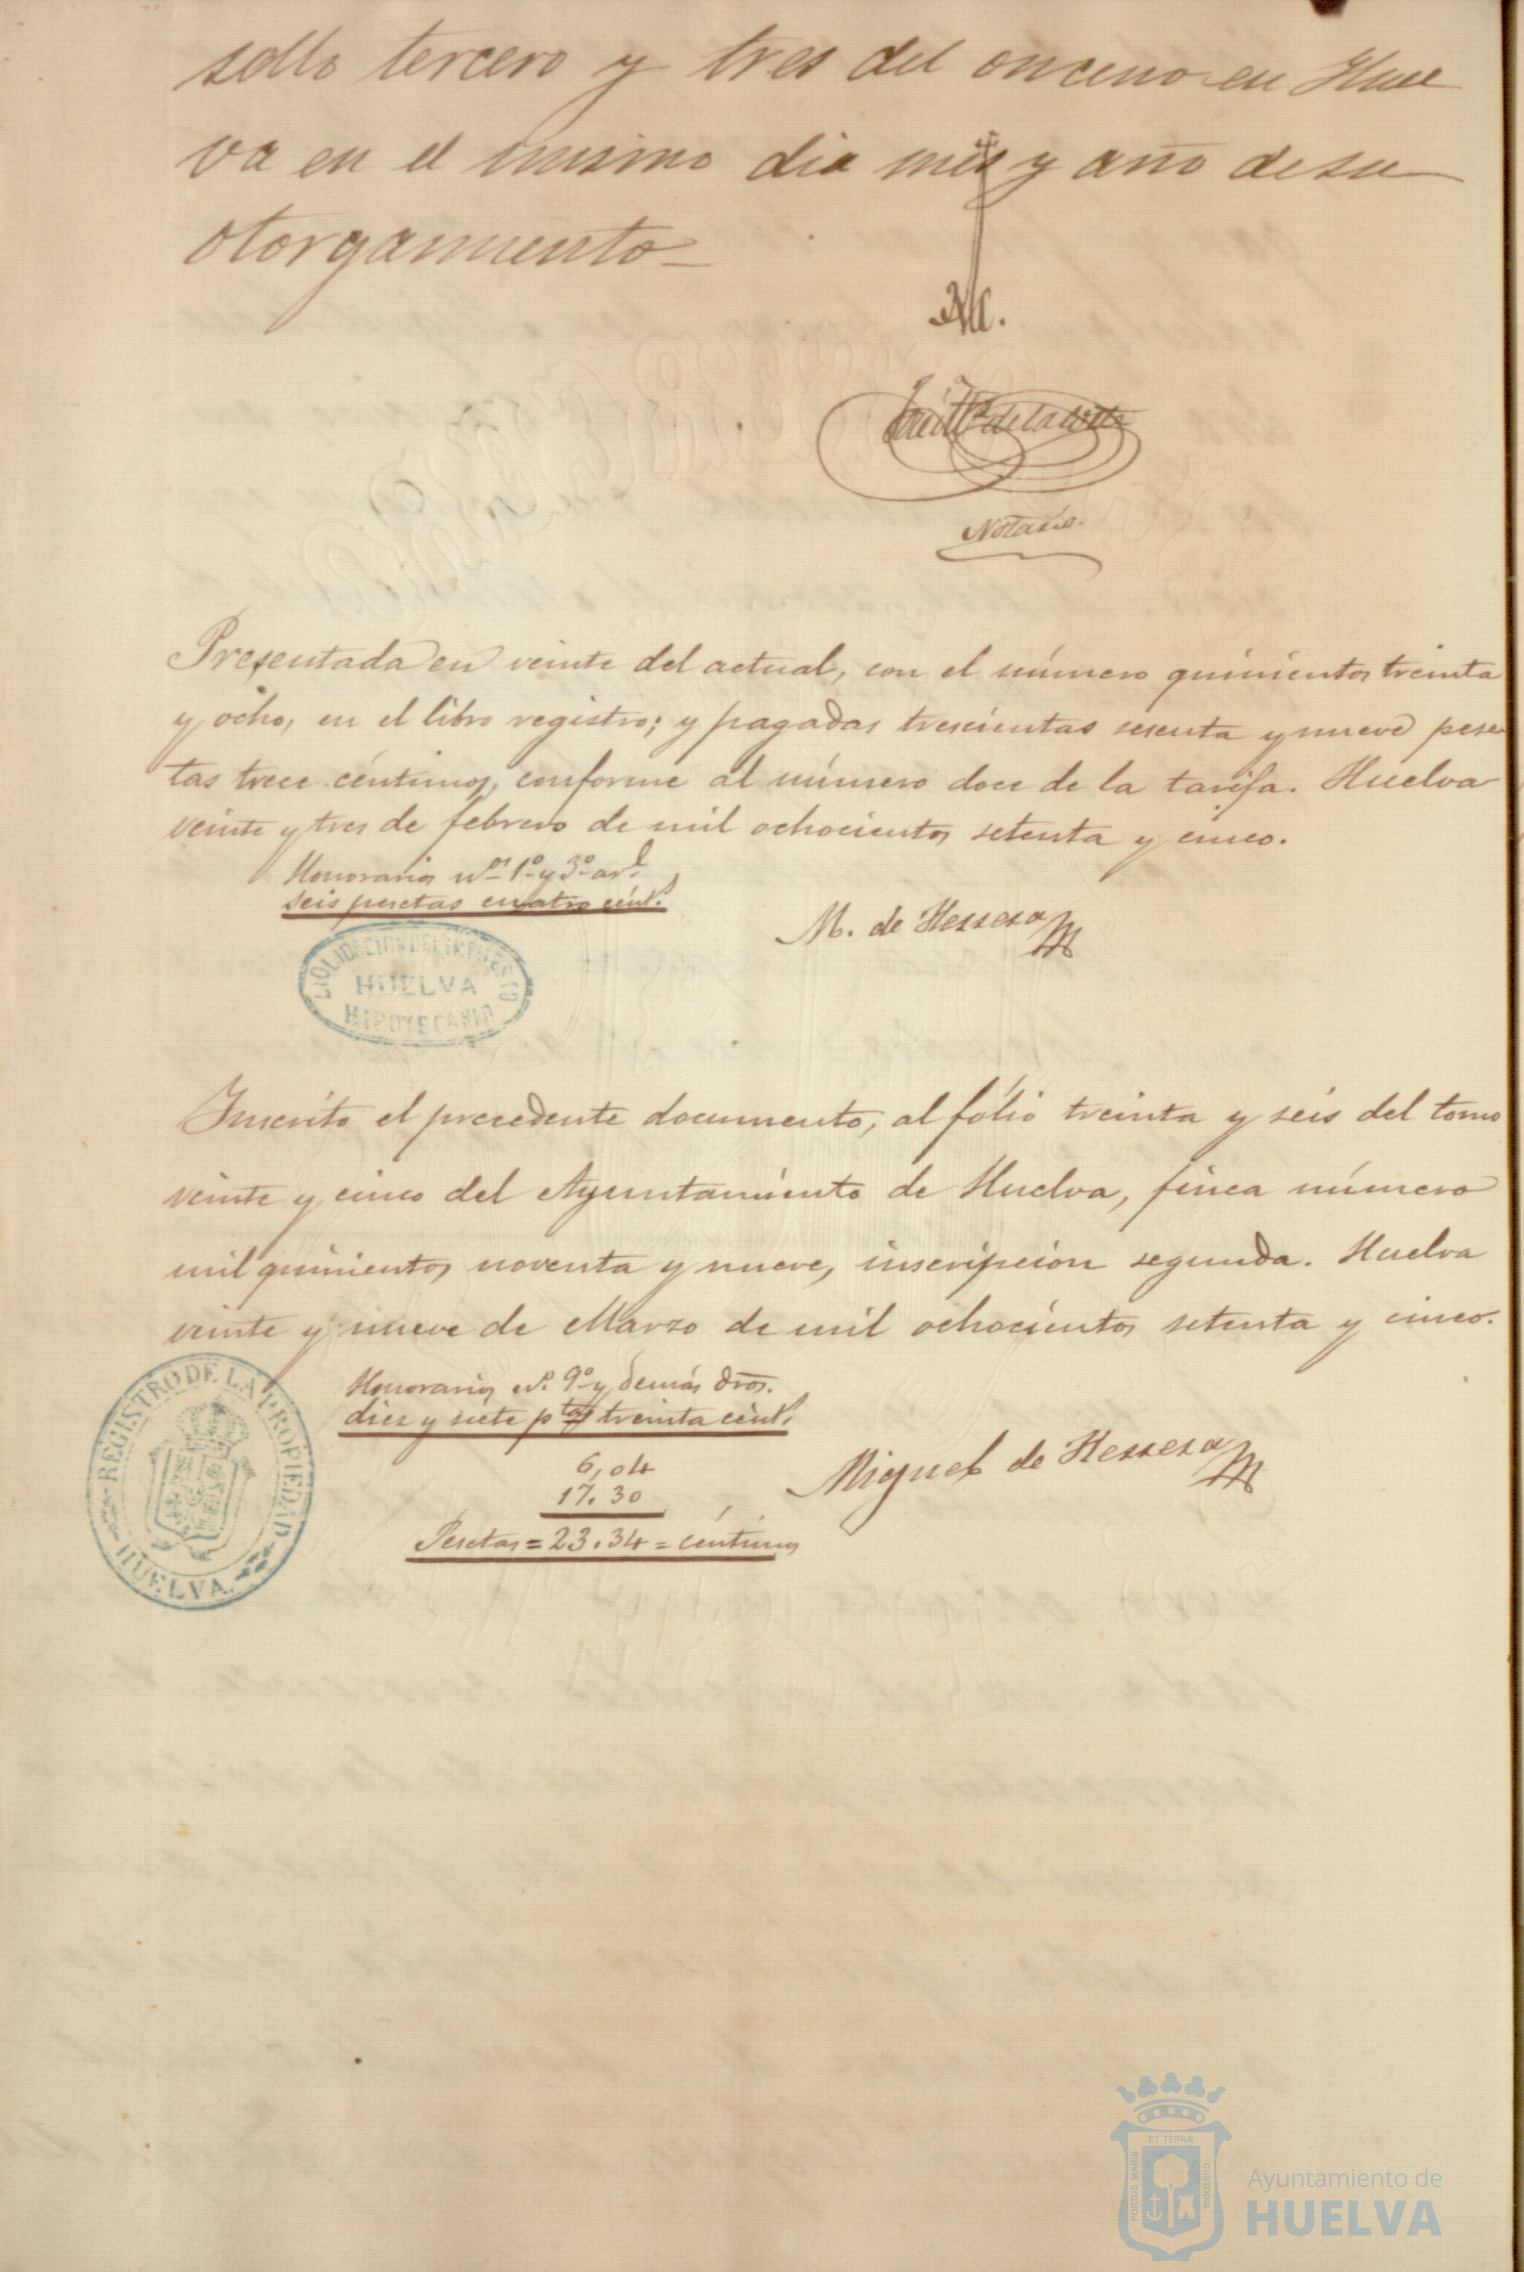 sello tercero y tres del onceno en Huel
va en el mismo dia mes y año de su
otorgamiento
de la
Notario.
Presentada en veinte del actual, con el número quinientos treinta
y ocho, en el libro registro; y pagadas trescientas sesenta y nueve pese
tas trece céntimos, conforme al número doce de la tarifa. Huelva
veinte y tres de febrero de mil ochocientos setenta y cinco.
Honorarios nos. 1º y 3º arl.
seis pesetas cuatro cént.s
M. de Herrera
LIQUIDACION DEL IMPUESTO
HUELVA
HIPOTECARIO
Inscrito el precedente documento, al fólio treinta y seis del tomo
veinte y cinco del Ayuntamiento de Huelva, finca número
mil quinientos noventa y nueve, inscripción segunda. Huelva
veinte y nueve de Marzo de mil ochocientos setenta y cinco.
REGISTRO DE LA PROPIEDAD
HUELVA
Honorarios nº. 9º y demás dros.
diez y siete ptas treinta cént.s
6,04
17.30
Miguel de Herrera
Pesetas = 23.34 = céntimos
ET TERRÆ
PORTUS MARIS
CUSTODIA
Ayuntamiento de
HUELVA